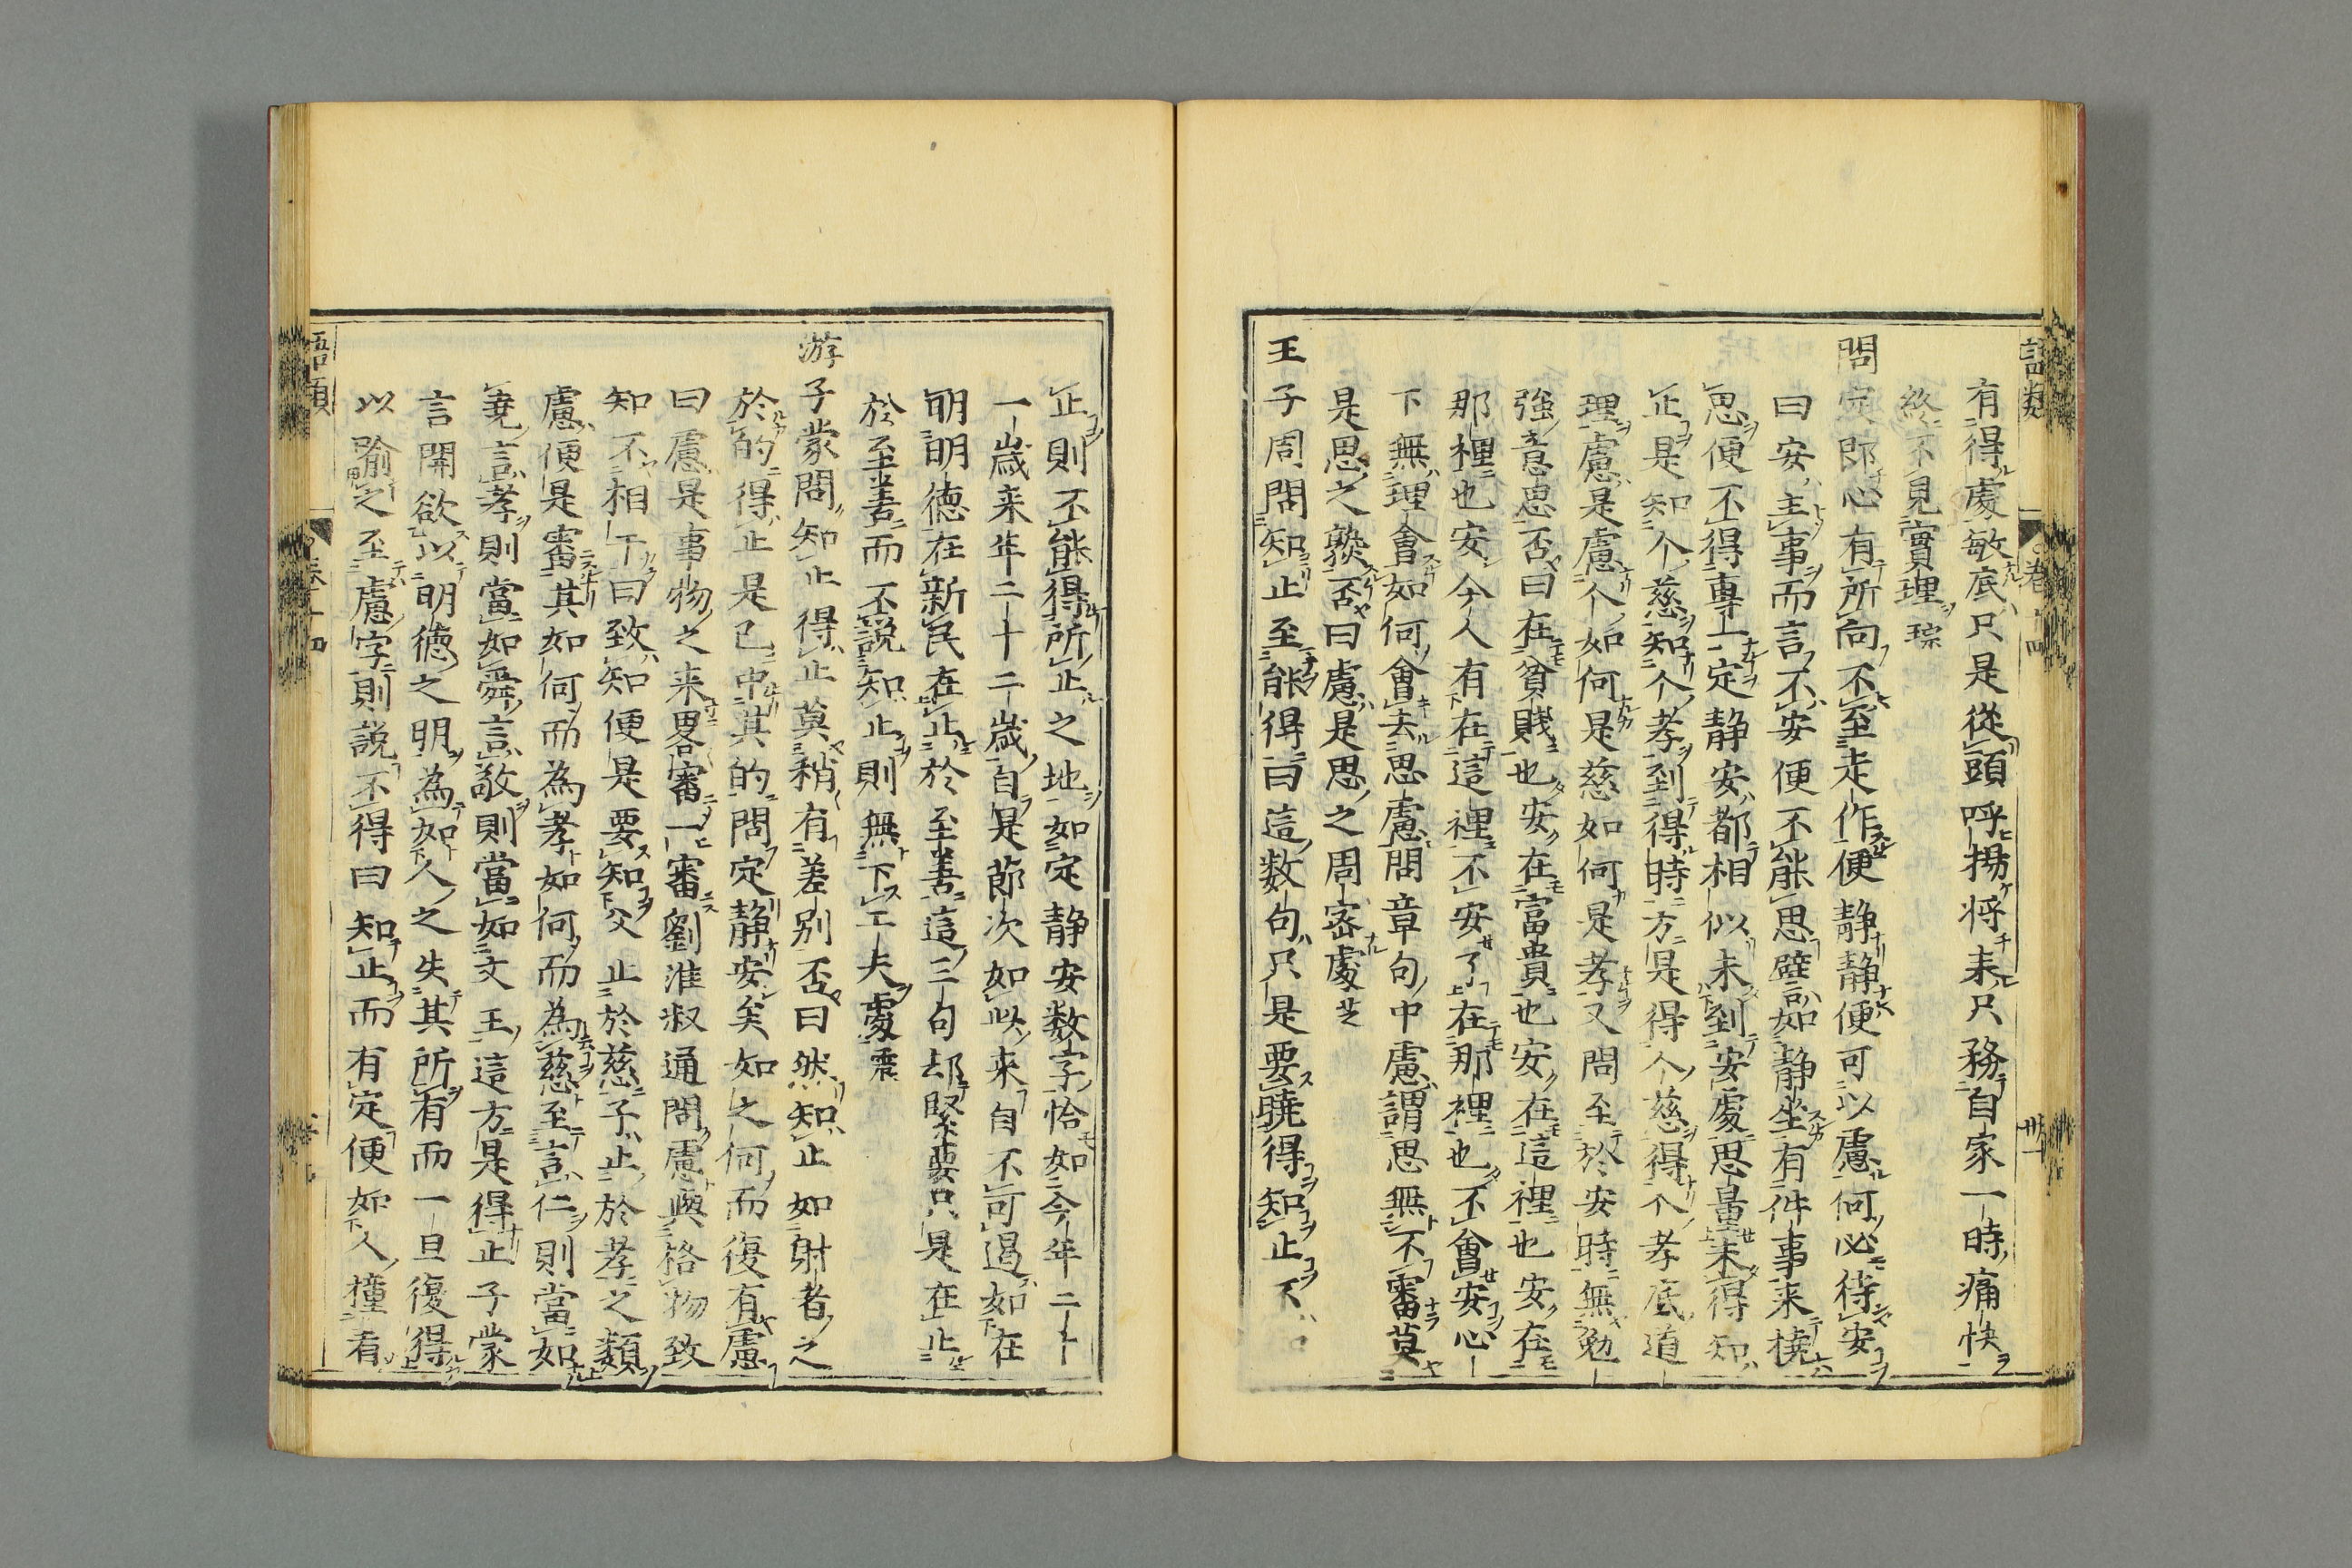 語類
卷十四
卅一
有得處敏底只是從頭呼揚将来只務自家一時痛快
終不見實理琮
問定即心有所向不至走作便静静便可以慮何必待安
曰安主事而言不安便不能思譬如静坐有件事来撓
思便不得專一定静安都相似未到安處思量未得知
止是知个慈知个孝到得時方是得个慈得个孝底道
理慮是慮个如何是慈如何是孝又問至於安時無勉
強意思否曰在貧賤也安在富貴也安在這裡也安在
那裡也安今人有在這裡不安了在那裡也不會安心
下無理會如何會去思慮問章句中慮謂思無不審莫
是思之熟否曰慮是思之周密處芝
王子周問知止至能得曰這数句只是要曉得知止不
止則不能得所止之地如定静安数字恰如今年二十
一歲来年二十二歲自是節次如此来自不可遏如在
明明德在新民在止於至善這三句却緊要只是在止
於至善而不說知止則無下工夫處震
游子蒙問知止得止莫稍有差别否曰然知止如射者之
於的得止是已中其的問定静安矣如之何而復有慮
曰慮是事物之来畧審一審劉淮叔通問慮與格物致
知不相干曰致知便是要知父止於慈子止於孝之類
慮便是審其如何而為孝如何而為慈至言仁則當如
堯言孝則當如舜言敬則當如文王這方是得止子蒙
言開欲以明德之明為如人之失其所有而一旦復得
以喻之至慮字則說不得曰知止而有定便如人撞着
語類
卷十四